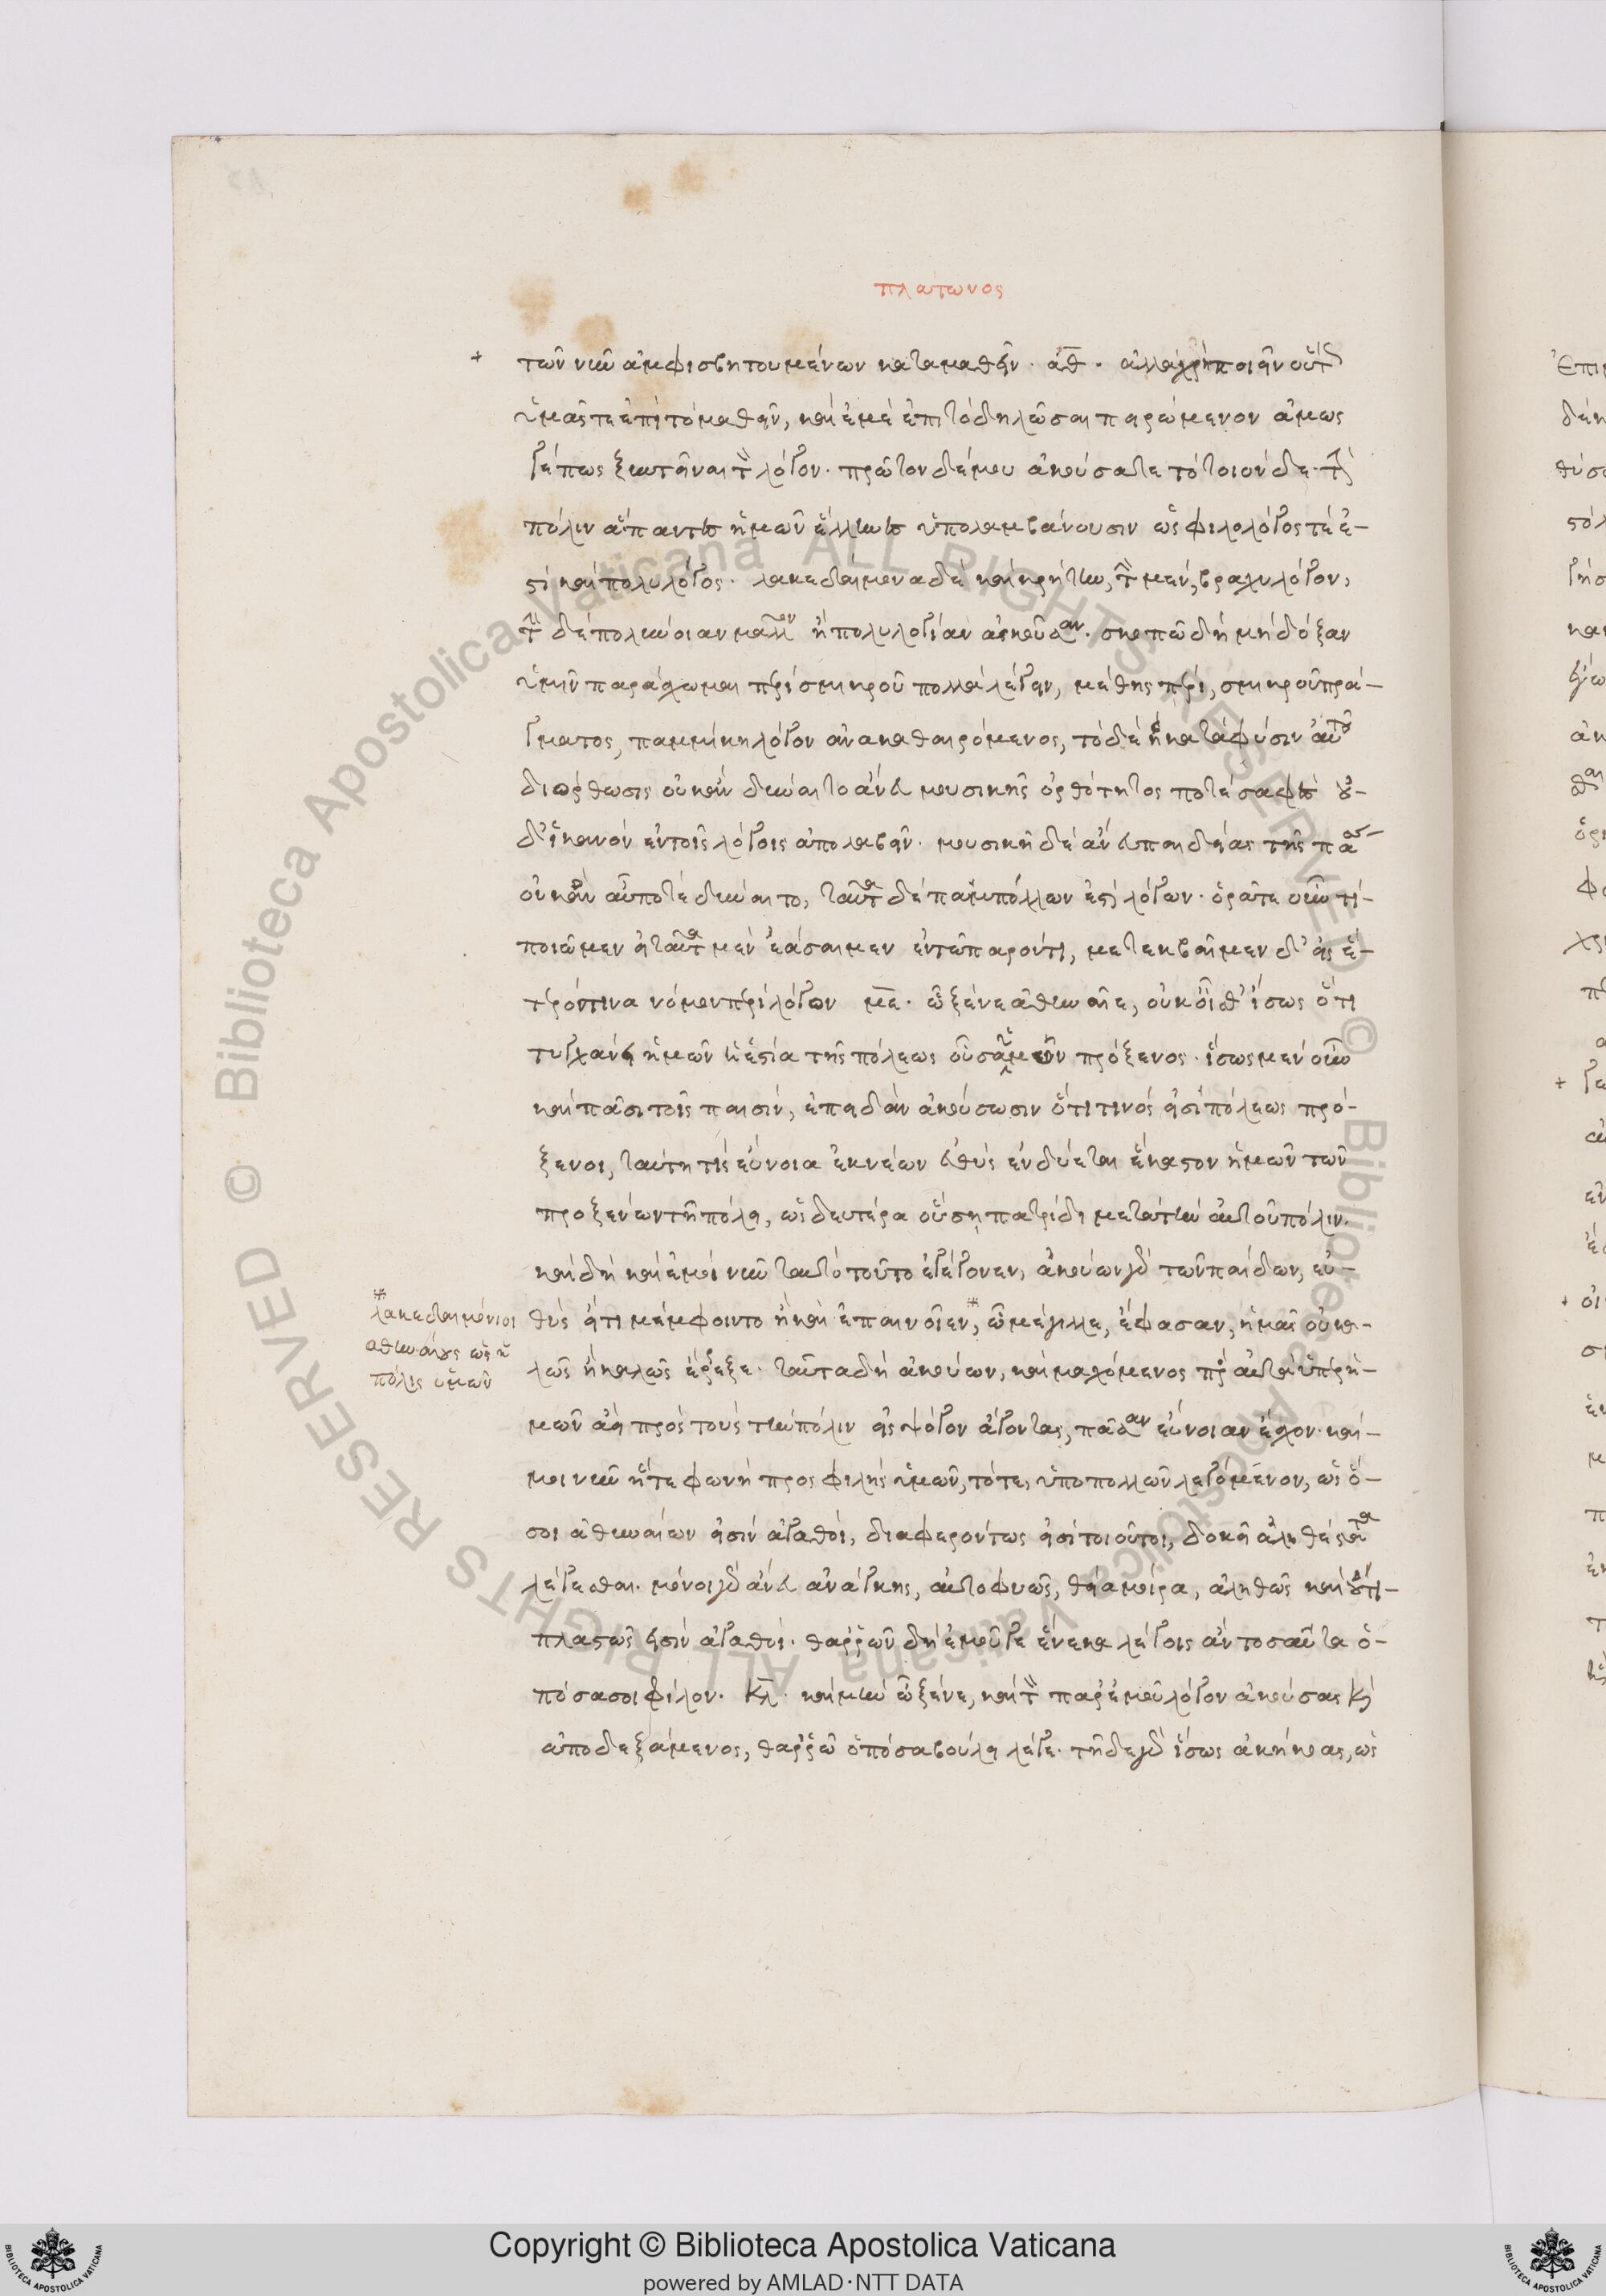 πλάτωνος
+ τῶν νῦν ἀμφισβητουμένων καταμαθεῖν. ἀθ. ἀλλὰ χρὴ ποιεῖν οὕτως
ὑμᾶς τε ἐπὶ τὸ μαθεῖν, καὶ ἐμὲ ἐπὶ τὸ δηλῶσαι πειρώμενον ἁμῶς
γέ πως ξυντεῖναι τὸν λόγον. πρῶτον δέ μου ἀκούσατε τὸ τοιόνδε. τὴν
πόλιν ἅπαντες ἡμῶν ἕλληνες ὑπολαμβάνουσιν ὡς φιλόλογός τέ ἐ-
στι καὶ πολύλογος. λακεδαίμονα δὲ καὶ κρήτην, τὴν μὲν, βραχύλογον,
τὴν δὲ πολύνοιαν μᾶλλον ἢ πολυλογίαν ἀσκοῦσαν. σκοπῶ δὴ μὴ δόξαν
ὑμῖν παράσχωμαι περὶ σμικροῦ πολλὰ λέγειν, μέθης πέρι, σμικροῦ πρά-
γματος, παμμήκη λόγον ἀνακαθαιρόμενος, τὸ δὲ ἡ κατὰ φύσιν αὐτοῦ
διόρθωσις οὐκ ἂν δύναιτο ἄνευ μουσικῆς ὀρθότητος ποτὲ σαφὲς οὐ-
δ' ἱκανὸν ἐν τοῖς λόγοις ἀπολαβεῖν. μουσικὴ δὲ ἄνευ παιδείας τῆς πάσης
οὐκ ἂν αὖ ποτὲ δύναιτο, ταῦτα δὲ παμπόλλων ἐστὶ λόγων. ὁρᾶτε οὖν τί
ποιῶμεν εἰ ταῦτα μὲν ἐάσαιμεν ἐν τῷ παρόντι, μετεκβαῖμεν δ' εἰς ἕ-
τερόν τινα νόμον πέρι λόγον με. ὦ ξένε ἀθηναῖε, οὐκ οἶσθ' ἴσως ὅτι
τυγχάνει ἡμῶν ἡ ἑστία τῆς πόλεως οὖσα ὑμῶν πρόξενος. ἴσως μὲν οὖν
καὶ πᾶσι τοῖς παισὶν, ἐπειδὰν ἀκούσωσιν ὅτι τινός εἰσι πόλεως πρό-
ξενοι, ταύτῃ τὶς εὔνοια ἐκ νέων εὐθὺς ἐνδύεται ἕκαστον ἡμῶν τῶν
προξένων τῇ πόλει, ὡς δευτέρα οὔσῃ πατρίδι μετὰ τὴν αὐτοῦ πόλιν.
καὶ δὴ καὶ ἐμοὶ νῦν ταυτὸ τοῦτο ἐγέγονεν, ἀκούων γὰρ τῶν παίδων, εὐ-
θὺς εἴ τι μέμφοιντο ἢ καὶ ἐπαινοῖεν※, ὦ μέγιλλε, ἔφασαν, ἡμᾶς οὐ κα-
λῶς ἢ καλῶς ἔρρεξε. ταῦτα δὴ ἀκούων, καὶ μαχόμενος πρὸς αὐτὰ ὑπὲρ ὑ-
μῶν ἀεὶ πρὸς τοὺς τὴν πόλιν εἰς ψόγον ἄγοντας, πᾶσαν εὔνοιαν ἔσχον. καί
μοι νῦν ἥ τε φωνὴ προσφιλὴς ὑμῶν, τό τε, ὑπὸ πολλῶν λεγόμενον, ὡς ὅ-
σοι ἀθηναίων εἰσὶν ἀγαθοὶ, διαφερόντως εἰσὶ τοιοῦτοι, δοκεῖ ἀληθέστατα
λέγεσθαι. μόνοι γὰρ ἄνευ ἀνάγκης, αὐτοφυῶς, θείᾳ μοίρᾳ, ἀληθῶς καὶ οὔτι
πλαστῶς εἰσὶν ἀγαθοί. θαρρῶν δὴ ἐμοῦ γε ἕνεκα λέγοις ἂν τοσαῦτα ὁ-
πόσα σοι φίλον. κλ. καὶ μὴν ὦ ξένε, καὶ τὸν παρ' ἐμοῦ λόγον ἀκούσας καὶ
ἀποδεξάμενος, θαρρῶν ὁπόσα βούλει λέγε. τῇδε γὰρ ἴσως ἀκήκοας, ὡς
※ λακεδαιμόνιοι
ἀθηναίους ὡς ἡ
πόλις ὑμῶν
Copyright © Biblioteca Apostolica Vaticana
powered by AMLAD·NTT DATA